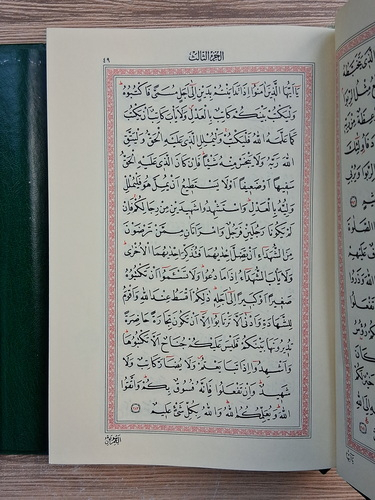 ٤٩
الجزء الثالث
يَا أَيُّهَا الَّذِينَ اٰمَنُوا اِذَا تَدَايَنْتُمْ بِدَيْنٍ اِلٰى اَجَلٍ مُسَمًّى فَاكْتُبُوهُ
وَلْيَكْتُبْ بَيْنَكُمْ كَاتِبٌ بِالْعَدْلِ وَلَا يَأْبَ كَاتِبٌ اَنْ يَكْتُبَ
كَمَا عَلَّمَهُ اللّٰهُ فَلْيَكْتُبْ وَلْيُمْلِلِ الَّذِي عَلَيْهِ الْحَقُّ وَلْيَتَّقِ
اللّٰهَ رَبَّهُ وَلَا يَبْخَسْ مِنْهُ شَيْئًا فَاِنْ كَانَ الَّذِي عَلَيْهِ الْحَقُّ
سَفِيهًا اَوْ ضَعِيفًا اَوْ لَا يَسْتَطِيعُ اَنْ يُمِلَّ هُوَ فَلْيُمْلِلْ
وَلِيُّهُ بِالْعَدْلِ وَاسْتَشْهِدُوا شَهِيدَيْنِ مِنْ رِجَالِكُمْ فَاِنْ
لَمْ يَكُونَا رَجُلَيْنِ فَرَجُلٌ وَامْرَاَتَانِ مِمَّنْ تَرْضَوْنَ
مِنَ الشُّهَدَاءِ اَنْ تَضِلَّ اِحْدٰيهُمَا فَتُذَكِّرَ اِحْدٰيهُمَا الْاُخْرٰى
وَلَا يَأْبَ الشُّهَدَاءُ اِذَا مَا دُعُوا وَلَا تَسْـَٔمُوا اَنْ تَكْتُبُوهُ
صَغِيرًا اَوْ كَبِيرًا اِلٰى اَجَلِهِ ذٰلِكُمْ اَقْسَطُ عِنْدَ اللّٰهِ وَاَقْوَمُ
لِلشَّهَادَةِ وَاَدْنٰى اَلَّا تَرْتَابُوا اِلَّا اَنْ تَكُونَ تِجَارَةً حَاضِرَةً
تُدِيرُونَهَا بَيْنَكُمْ فَلَيْسَ عَلَيْكُمْ جُنَاحٌ اَلَّا تَكْتُبُوهَا
وَاَشْهِدُوا اِذَا تَبَايَعْتُمْ وَلَا يُضَارَّ كَاتِبٌ وَلَا
شَهِيدٌ وَاِنْ تَفْعَلُوا فَاِنَّهُ فُسُوقٌ بِكُمْ وَاتَّقُوا
اللّٰهَ وَيُعَلِّمُكُمُ اللّٰهُ وَاللّٰهُ بِكُلِّ شَيْءٍ عَلِيمٌ ٢٨٢